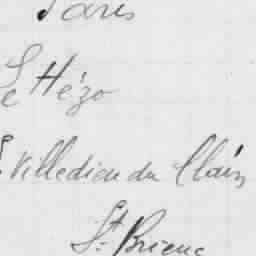 Paris
Le Hézo
Villedieu du Clain
St Brieuc